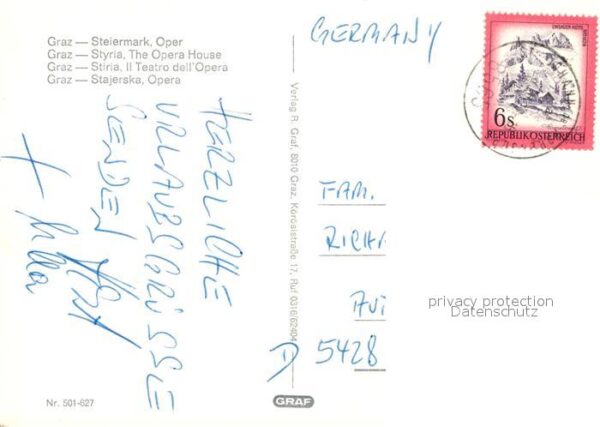 Graz — Steiermark, Oper
Graz — Styria, The Opera House
Graz — Stiria, Il Teatro dell'Opera
Graz — Stajerska, Opera
HERZLICHE
URLAUBSGRÜSSE
SENDEN
+
Nr. 501-627
Verlag R. Graf, 8010 Graz, Körösistraße 17, Ruf 0316/62404
GRAF
GERMANY
6s
REPUBLIK ÖSTERREICH
FAM.
RICHA
AVI
D 5428
privacy protection
Datenschutz